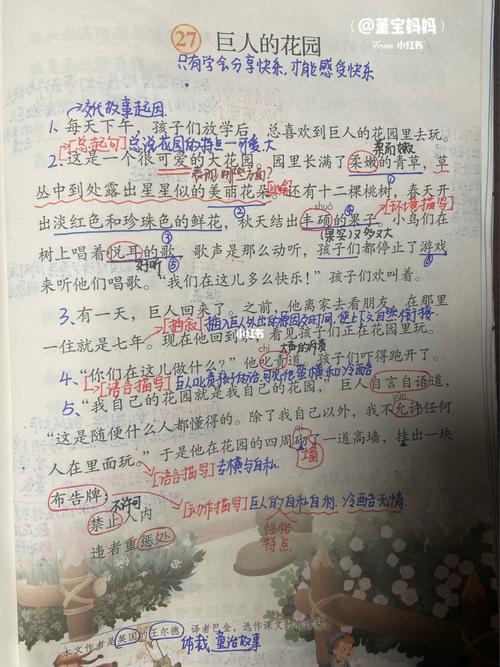 @董宝妈妈
From 小红书
27 巨人的花园
只有学会分享快乐，才能感受快乐
交代故事起因
1、每天下午，孩子们放学后，总喜欢到巨人的花园里去玩。
[总起句]总说花园的特点—可爱、大
柔而嫩
2、这是一个很可爱的大花园。园里长满了柔嫩的青草，草
表现在哪些方面？ ①
丛中到处露出星星似的美丽花朵。还有十二棵桃树，春天开
② shuò [环境描写]
出淡红色和珍珠色的鲜花，秋天结出丰硕的果子。小鸟们在
③ (果实)又多又大 ④
树上唱着悦耳的歌，歌声是那么动听，孩子们都停止了游戏
好听 ⑤ ⑥
来听他们唱歌。“我们在这儿多么快乐！”孩子们欢叫着。
3、有一天，巨人回来了。之前，他离家去看朋友，在那里
[插叙]
一住就是七年。现在他回到 看见孩子们正在花园里玩。
小红书
大声的斥责
4、“你们在这儿做什么？”他叱责道，孩子们吓得跑开了。
[语言描写]
5、“我自己的花园就是我自己的花园，”巨人自言自语道，
yǔn
“这是随便什么人都懂得的。除了我自己以外，我不允许任何
人在里面玩。”于是他在花园的四周砌了一道高墙，挂出一块
[语言描写] 墙
布告牌：
不许可 [动作描写]巨人的自私自利、冷酷无情。
禁止入内
性格
违者重惩处
特点
本文作者是英国的王尔德，译者巴金，选作课文时有改动。
体裁：童话故事